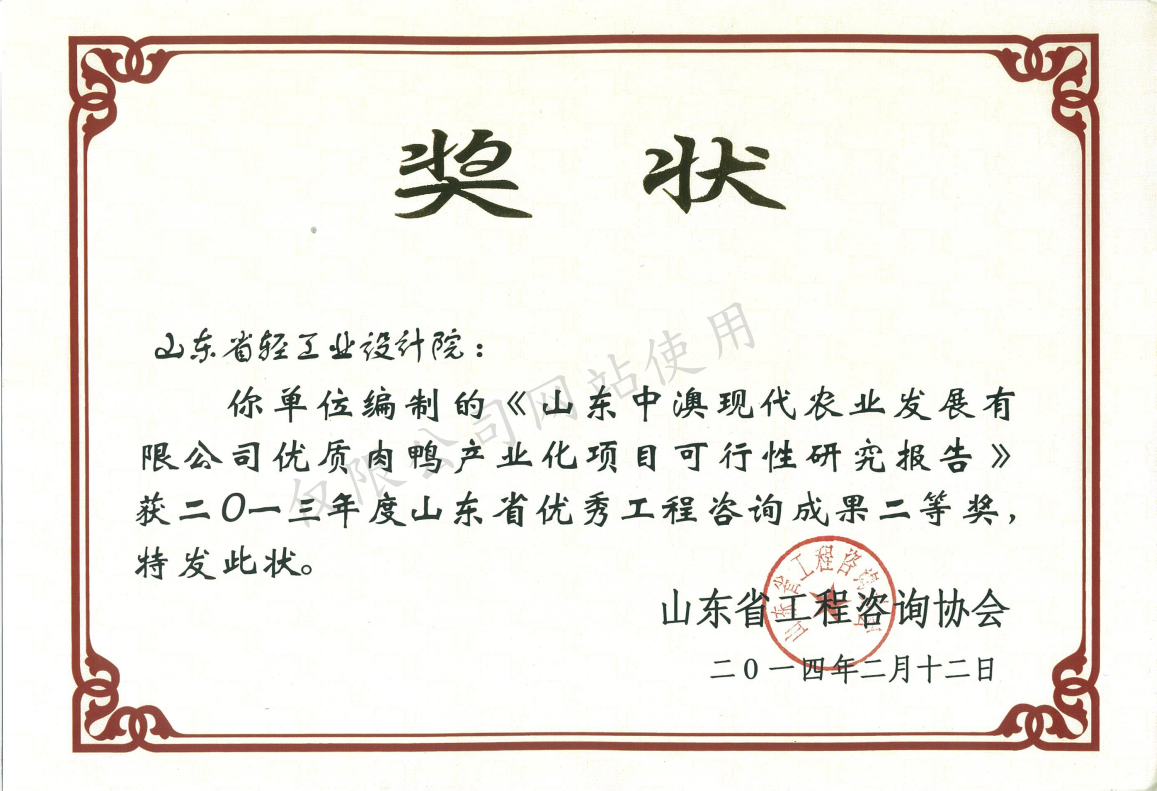 奖 状
山东省轻工业设计院：
你单位编制的《山东中澳现代农业发展有
限公司优质肉鸭产业化项目可行性研究报告》
获二〇一三年度山东省优秀工程咨询成果二等奖，
特发此状。
山东省工程咨询协会
二〇一四年二月十二日
山东省工程咨询协会
仅限公司网站使用